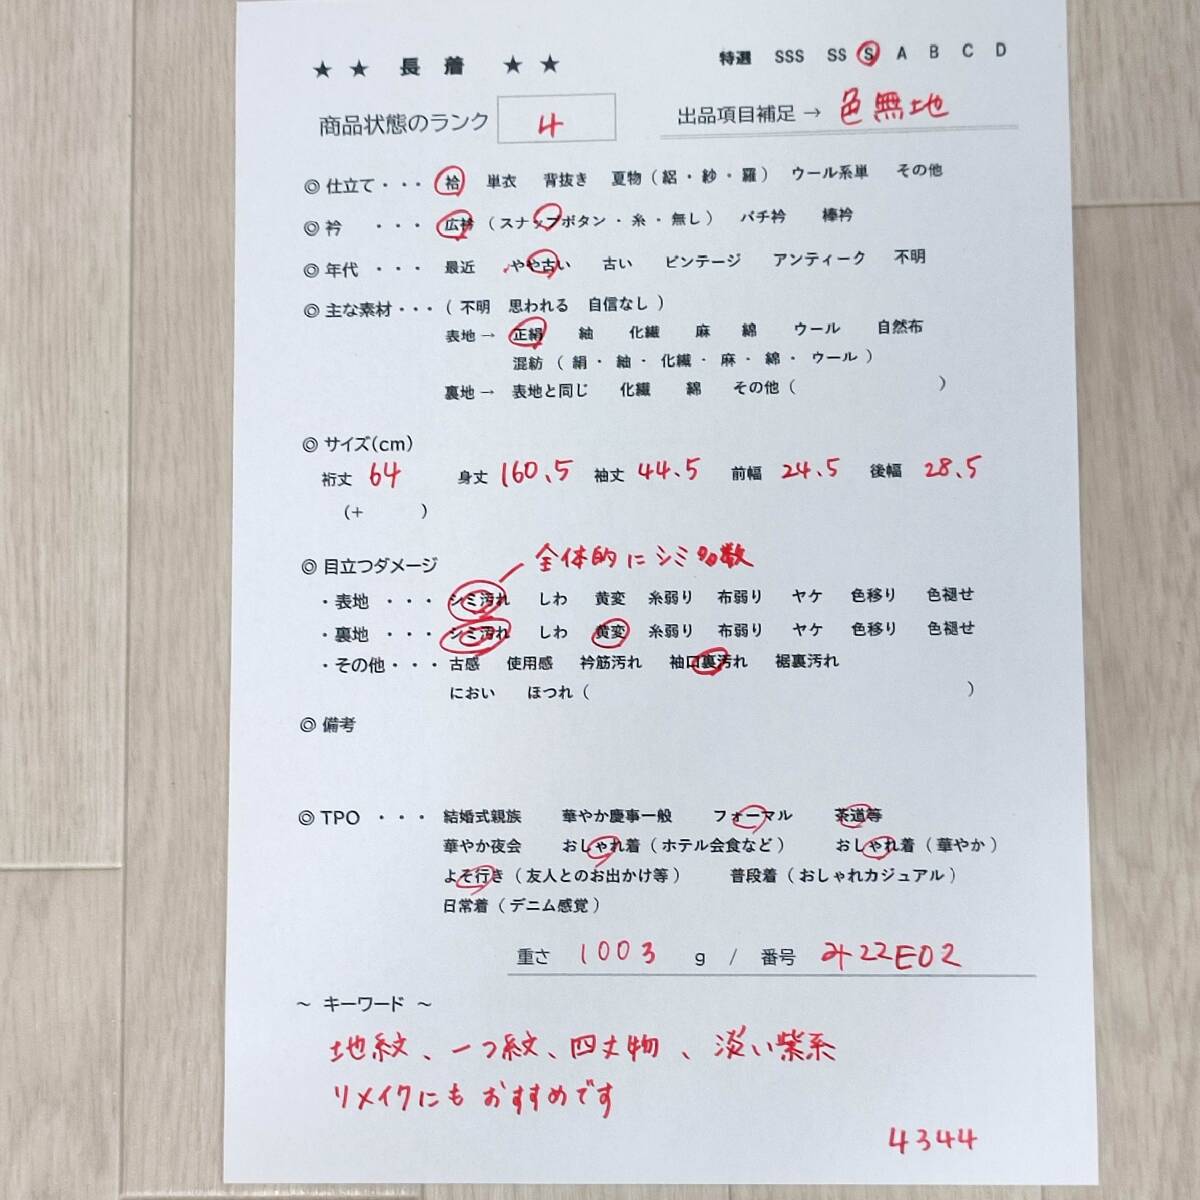 ★ ★ 長 着 ★ ★ 特選 SSS SS S A B C D
商品状態のランク 4 出品項目補足 → 色無地
◎ 仕立て・・・ 袷 単衣 背抜き 夏物 ( 絽 ・ 紗 ・ 羅 ) ウール系単 その他
◎ 衿 ・・・ 広衿 ( スナップボタン ・ 糸 ・ 無し ) バチ衿 棒衿
◎ 年代 ・・・ 最近 やや古い 古い ビンテージ アンティーク 不明
◎ 主な素材・・・ ( 不明 思われる 自信なし )
表地 → 正絹 紬 化繊 麻 綿 ウール 自然布
混紡 ( 絹 ・ 紬 ・ 化繊 ・ 麻 ・ 綿 ・ ウール )
裏地 → 表地と同じ 化繊 綿 その他 ( )
◎ サイズ(cm)
裄丈 64 身丈 160.5 袖丈 44.5 前幅 24.5 後幅 28.5
(+ )
全体的にシミ多数
◎ 目立つダメージ
・表地 ・・・ シミ汚れ しわ 黄変 糸弱り 布弱り ヤケ 色移り 色褪せ
・裏地 ・・・ シミ汚れ しわ 黄変 糸弱り 布弱り ヤケ 色移り 色褪せ
・その他・・・ 古感 使用感 衿筋汚れ 袖口裏汚れ 裾裏汚れ
におい ほつれ ( )
◎ 備考
◎ TPO ・・・ 結婚式親族 華やか慶事一般 フォーマル 茶道等
華やか夜会 おしゃれ着 ( ホテル会食など ) おしゃれ着 ( 華やか )
よそ行き ( 友人とのお出かけ等 ) 普段着 ( おしゃれカジュアル )
日常着 ( デニム感覚 )
重さ 1003 g / 番号 み22E02
～ キーワード ～
地紋、一つ紋、四丈物、淡い紫系
リメイクにもおすすめです
4344